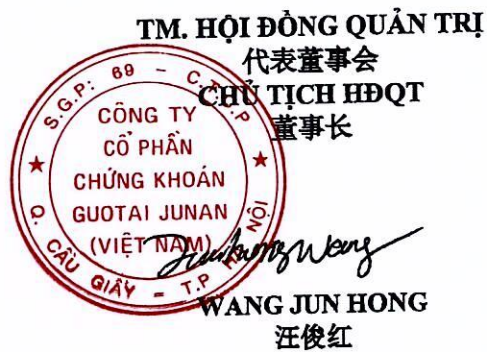 TM. HỘI ĐỒNG QUẢN TRỊ
代表董事会
CHỦ TỊCH HĐQT
董事长
S.G.P: 69 - C.T.C.P
CÔNG TY
CỔ PHẦN
CHỨNG KHOÁN
GUOTAI JUNAN
(VIỆT NAM)
Q. CẦU GIẤY - T.P HÀ NỘI
Junhong Wang
WANG JUN HONG
汪俊红